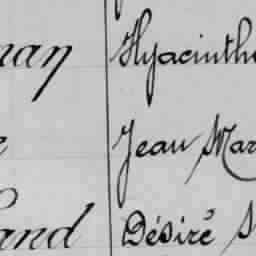 nan Hyacinthe
Jean Mar
and Désiré